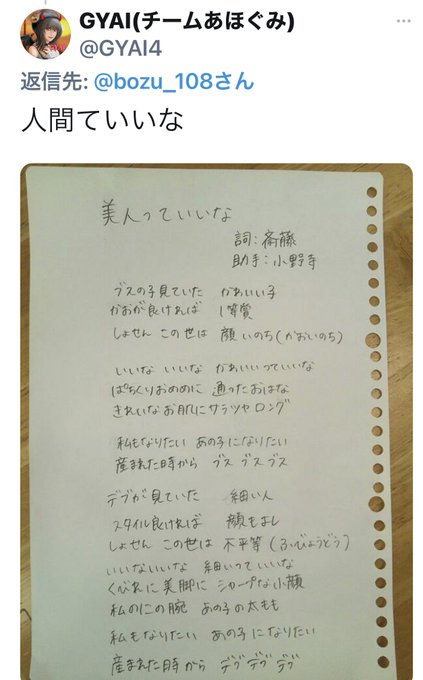 GYAI(チームあほぐみ)
@GYAI4
返信先: @bozu_108さん
人間ていいな
美人っていいな
詞:斎藤
助手:小野寺
ブスの子見ていた かわいい子
かおが良ければ 1等賞
しょせん この世は 顔いのち(かおいのち)
いいな いいな かわいいっていいな
ぱちくりおめめに 通ったおはな
きれいなお肌にサラツヤロング
私もなりたい あの子になりたい
産まれた時から ブス ブス ブス
デブが見ていた 細い人
スタイル良ければ 顔もよし
しょせん この世は 不平等(ふびょうどう)
いいないいな 細いっていいな
くびれに美脚に シャープな小顔
私のにの腕 あの子の太もも
私もなりたい あの子になりたい
産まれた時から デブ デブ デブ